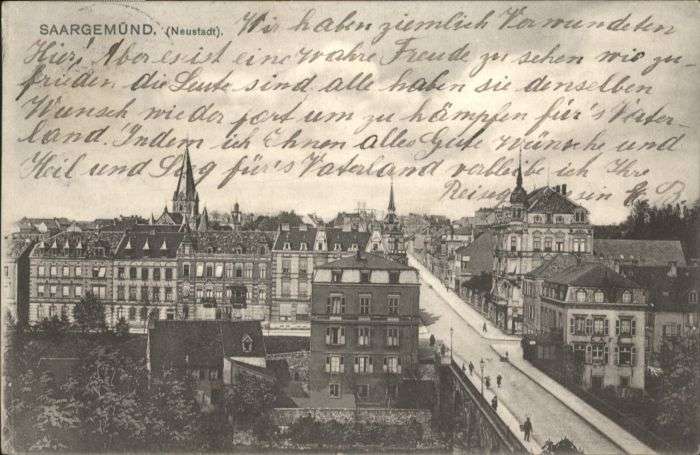 SAARGEMÜND. (Neustadt).
Wir haben ziemlich Verwundeten
Hier! Aber es ist eine wahre Freude zu sehen wie zu-
frieden die Leute sind alle haben sie denselben
Wunsch wieder fort um zu kämpfen für's Vater-
land. Indem ich Ihnen alles Gute wünsche und
Heil und Sieg für's Vaterland verbleibe ich Ihre